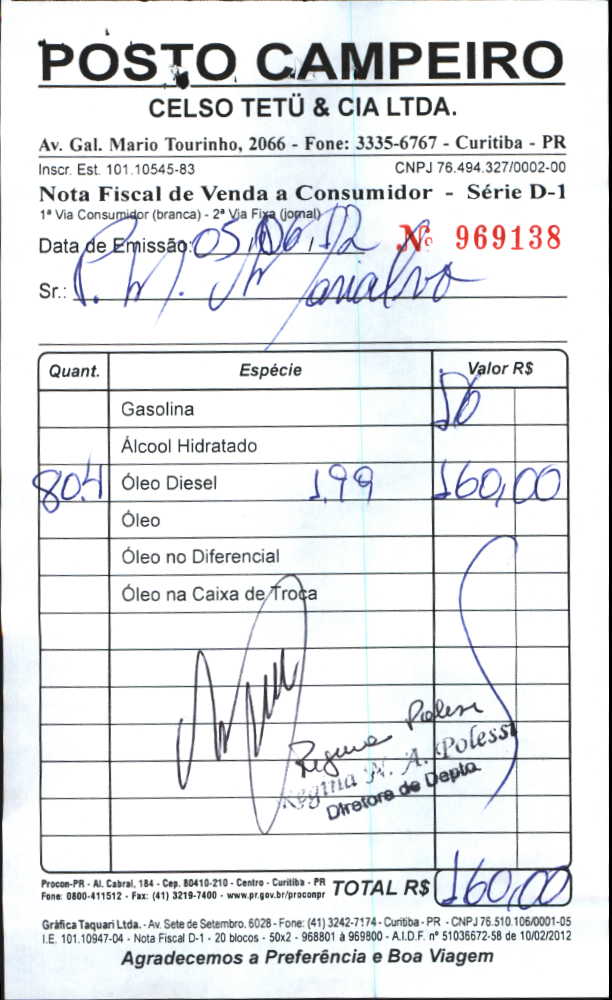 POSTO CAMPEIRO
CELSO TETÜ & CIA LTDA.
Av. Gal. Mario Tourinho, 2066 - Fone: 3335-6767 - Curitiba - PR
Inscr. Est. 101.10545-83 CNPJ 76.494.327/0002-00
Nota Fiscal de Venda a Consumidor - Série D-1
1ª Via Consumidor (branca) - 2ª Via Fixa (jornal)
Data de Emissão: 05, 06, 12 Nº 969138
Sr.: P. M.
Quant. Espécie Valor R$
Gasolina
Álcool Hidratado
80.4 Óleo Diesel 1,99 160,00
Óleo
Óleo no Diferencial
Óleo na Caixa de Troca
Regina Polessi
Regina N. A. Polessi
Diretora de Depto.
Procon-PR - Al. Cabral, 184 - Cep. 80410-210 - Centro - Curitiba - PR
Fone: 0800-411512 - Fax: (41) 3219-7400 - www.pr.gov.br/proconpr
TOTAL R$ 160,00
Gráfica Taquari Ltda. - Av. Sete de Setembro, 6028 - Fone: (41) 3242-7174 - Curitiba - PR - CNPJ 76.510.106/0001-05
I.E. 101.10947-04 - Nota Fiscal D-1 - 20 blocos - 50x2 - 968801 à 969800 - A.I.D.F. nº 51036672-58 de 10/02/2012
Agradecemos a Preferência e Boa Viagem